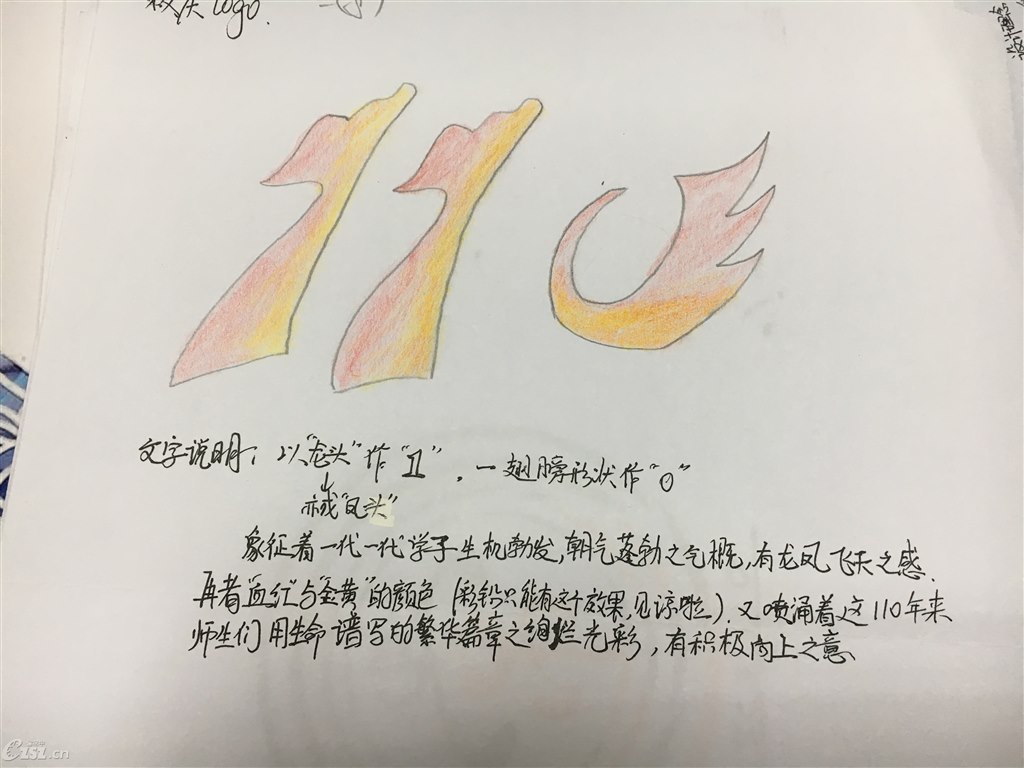 校庆logo.
110
文字说明：以"龙头"作"1"，一翅膀形状作"0"
亦或"凤头"
象征着一代一代学子生机勃发,朝气蓬勃之气概,有龙凤飞天之感.
再者"血红"与"金黄"的颜色（彩铅只能有这个效果,见谅啦）.又喷涌着这110年来
师生们用生命谱写的繁华篇章之绚烂光彩,有积极向上之意、